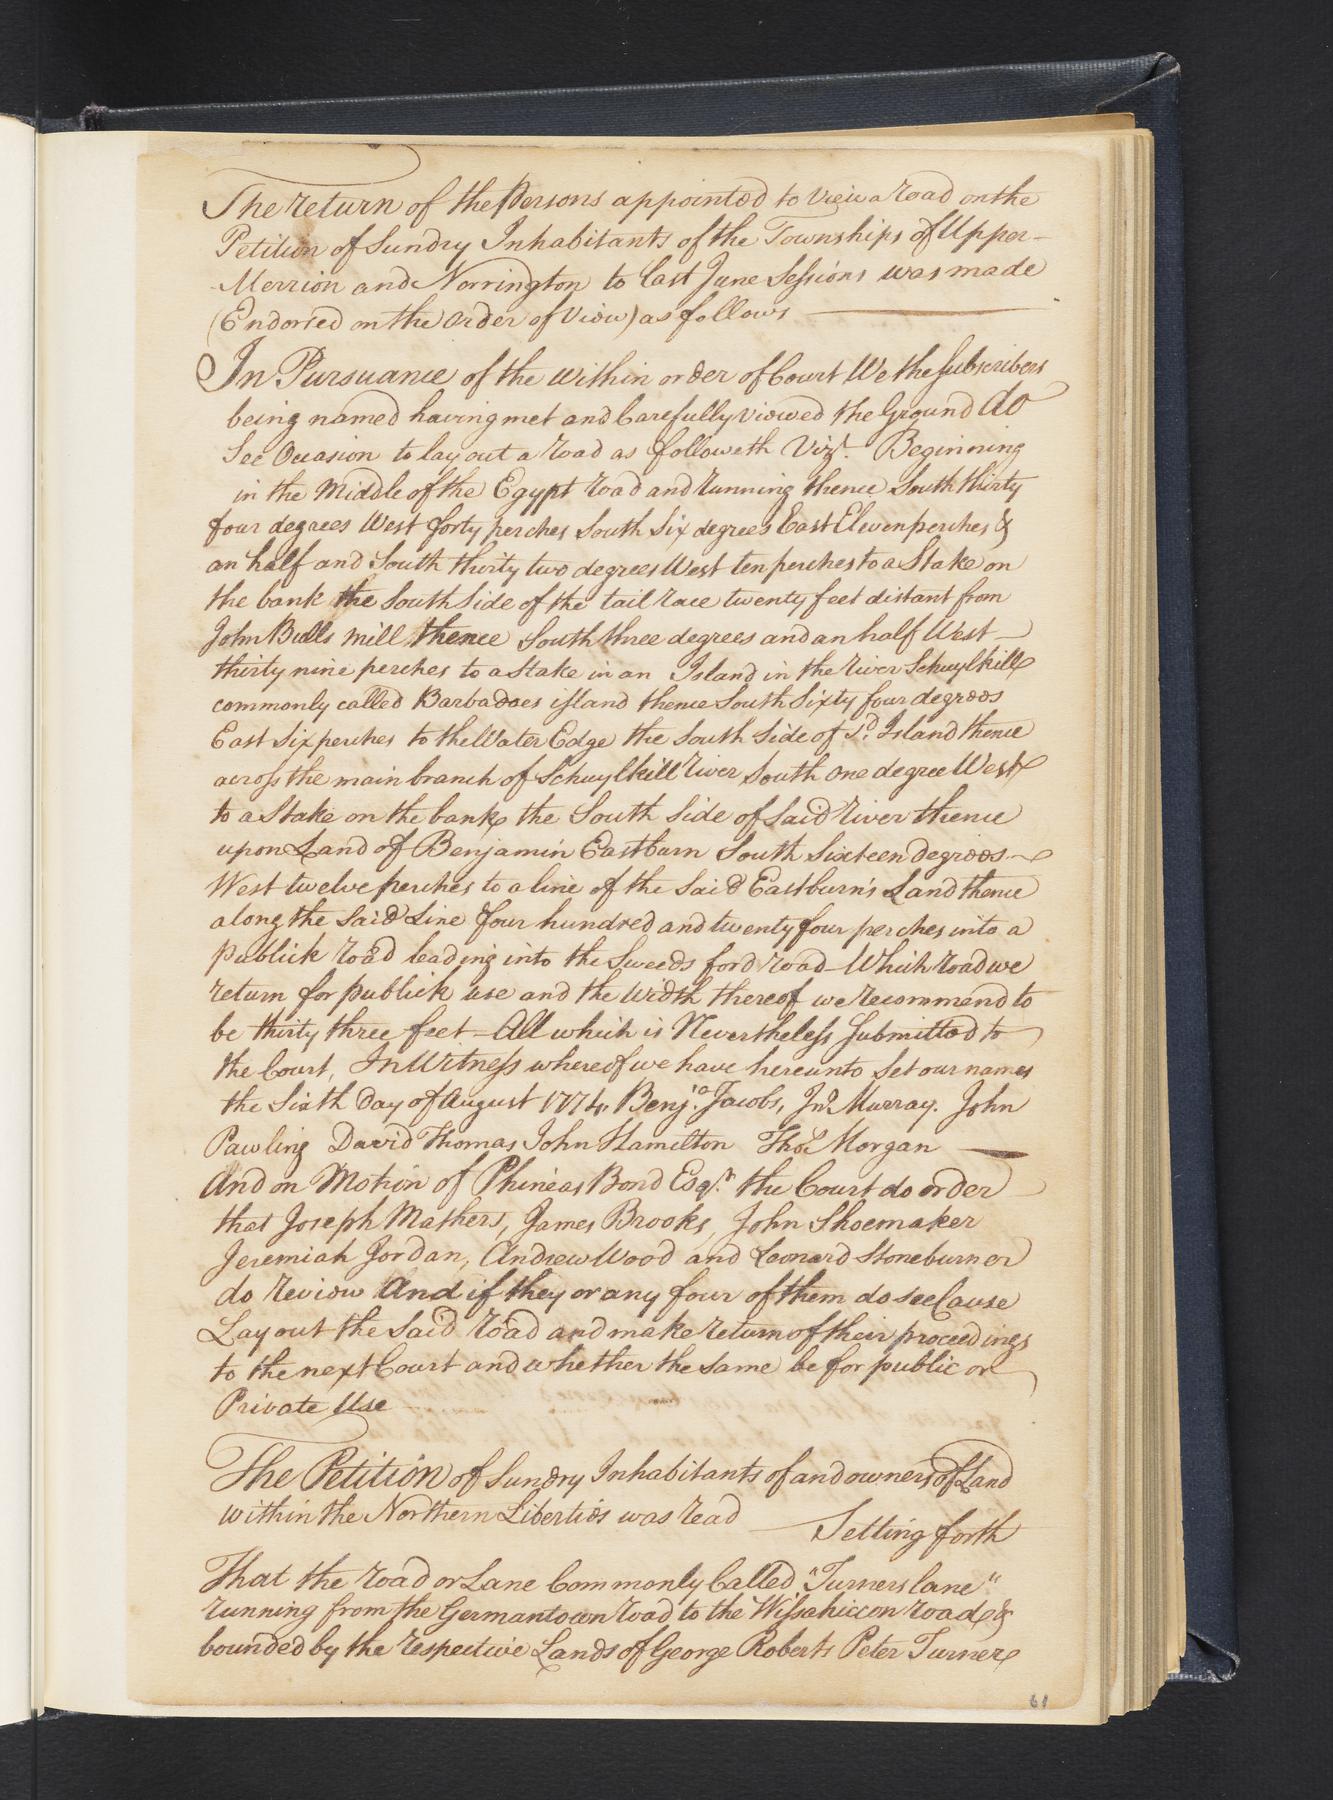 The return of the Persons appointed to View a road on the
Petition of Sundry Inhabitants of the Townships of Upper
Merrion and Norrington to last June Sessions was made
(Endorsed on the Order of View) as follows
In Pursuance of the within order of Court We the Subscribers
being named having met and Carefully viewed the Ground do
See Occasion to lay out a road as followeth Vizt. Beginning
in the Middle of the Egypt road and running thence South thirty
four degrees West forty perches South Six degrees East Eleven perches &
an half and South thirty two degrees West ten perches to a Stake on
the bank the South Side of the tail race twenty feet distant from
John Bulls mill thence South three degrees and an half West
thirty nine perches to a Stake in an Island in the river Schuylkill
commonly called Barbadoes island thence South Sixty four degrees
East Six perches to the Water Edge the South Side of sd. Island thence
across the main branch of Schuylkill river South one degree West
to a Stake on the bank the South Side of Said river thence
upon Land of Benjamin Eastburn South Sixteen degrees
West twelve perches to a line of the Said Eastburn's Land thence
along the Said Line four hundred and twenty four perches into a
publick road leading into the Sweeds ford road Which road we
return for publick use and the Width thereof we recommend to
be thirty three feet All which is Nevertheless Submitted to
the Court, In Witness whereof we have hereunto Set our names
the Sixth Day of August 1774, Benja. Jacobs, Jno. Murray. John
Pawling David Thomas John Hamilton Thos. Morgan
And on Motion of Phineas Bond Esqr. the Court do order
that Joseph Mathers, James Brooks, John Shoemaker
Jeremiah Jordan, Andrew Wood and Leonard Stoneburner
do review And if they or any four of them do see Cause
Lay out the Said road and make return of their proceedings
to the next Court and whether the same be for public or
Private Use
The Petition of Sundry Inhabitants of and owners of Land
within the Northern Liberties was read
Setting forth
That the road or Lane Commonly Called "Turners lane"
running from the Germantown road to the Wissahiccon road &
bounded by the respective Lands of George Roberts Peter Turner
61